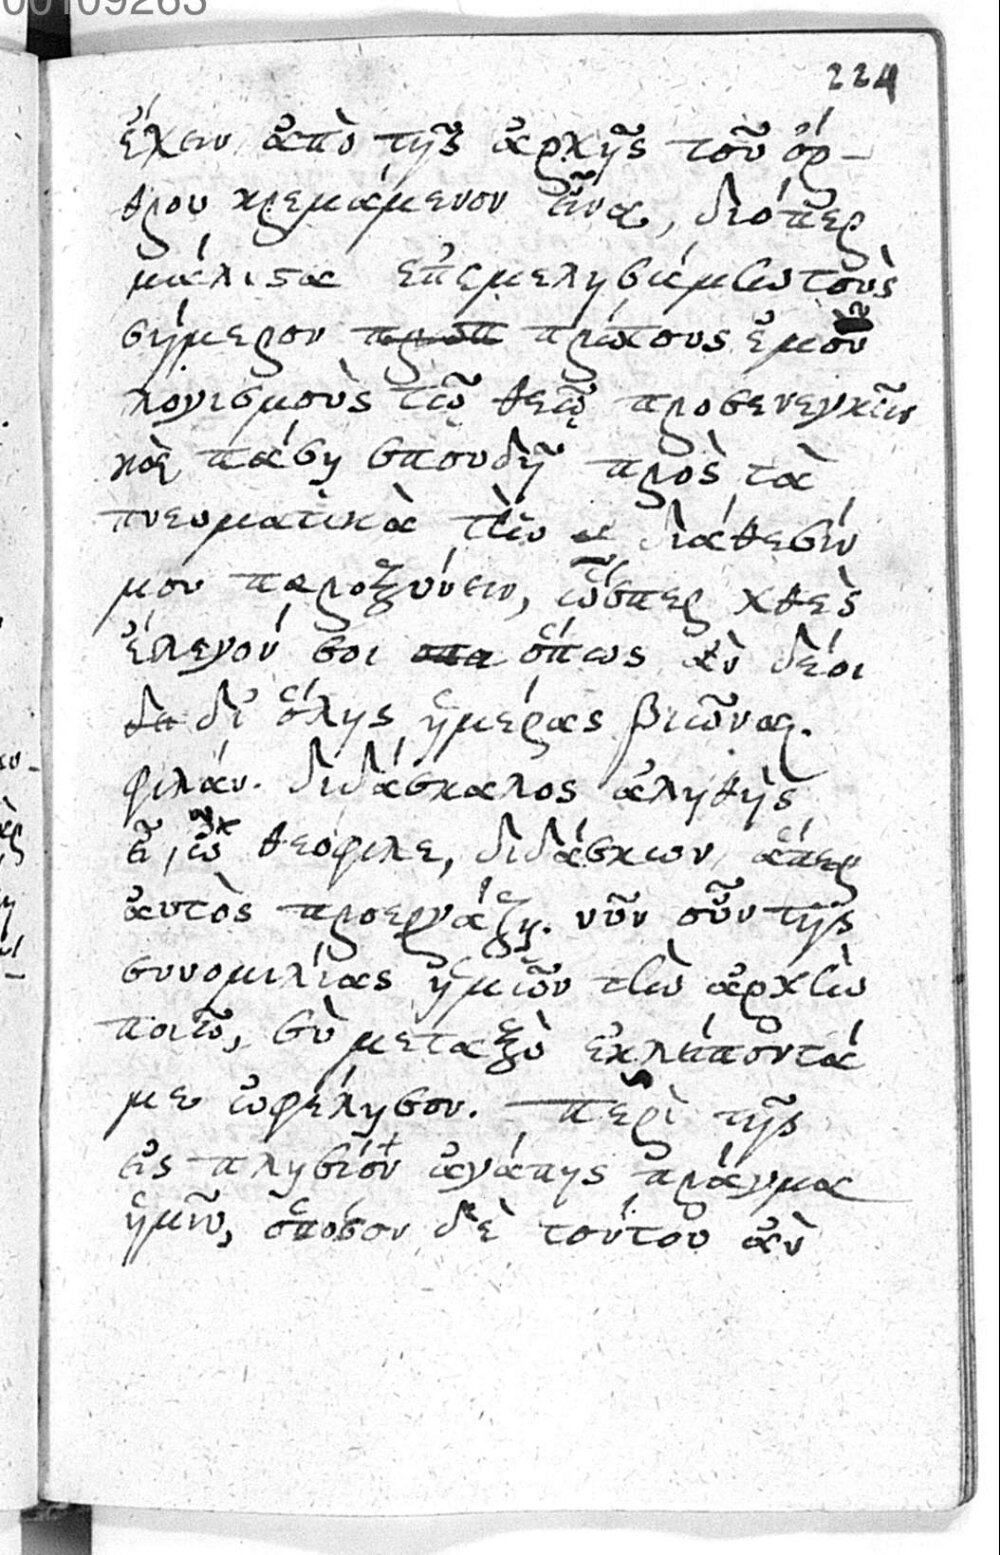 00109263
224
ἔχειν ἀπὸ τῆς ἀρχῆς τοῦ ὄρ-
θρου κρεμάμενον εἶναι, διόπερ
μάλιστα ἐπεμελησάμην τοὺς
σήμερον πρωπ πρώτους ἐμοῦ
λογισμοὺς τῷ θεῷ προσενεγκεῖν
καὶ πάσῃ σπουδῇ πρὸς τὰ
πνευματικὰ τὴν διάθεσίν
μου παροξύνειν, ὥσπερ χθὲς
ἔλεγόν σοι οπα ὅπως ἂν δέοι
δε δι' ὅλης ἡμέρας βιῶναι.
φιλάν. διδάσκαλος ἀληθὴς
εἶ, ὦ θεόφιλε, διδάσκων ἅπερ
αὐτὸς προεργάζῃ. νῦν οὖν τῆς
συνομιλίας ἡμῶν τὴν ἀρχὴν
ποιῶ, σὺ μεταξὺ ἐκλείποντά
με ὠφέλησον. περὶ τῆς
εἰς πλησίον ἀγάπης πρᾶγμα
ἡμῖν, ὁπόσον δὲ τούτου ἂν